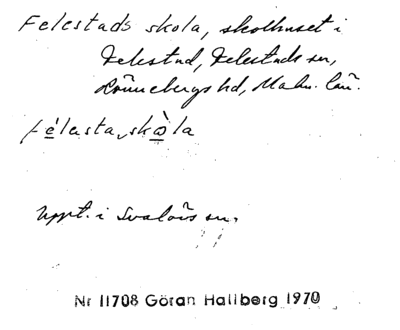 Felestads skola, skolhuset i
Felestad, Felestads sn,
Rönnebergs hd, Malm. län.
fé̲lesta skò̲la
Uppt. i Svalövs sn.
Nr 11708 Göran Hallberg 1970